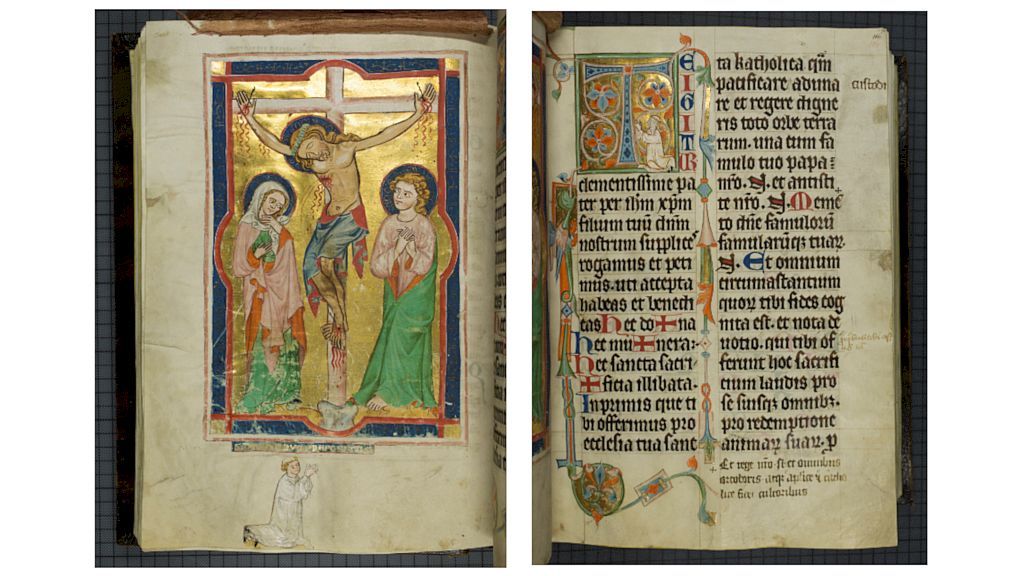 TEIGITR
clementissime pa
ter per ihm xpm
filium tuū dnm
nostrum supplices
rogamus et peti
mus. uti accepta
habeas et benedi
cas Hec do✚na
Hec mu✚nera.
Hec sancta sacri
✚ficia illibata.
Inprimis que ti
bi offerimus pro
ecclesia tua sanc
ta katholica qm̄
pacificare aduna
re et regere digne
ris toto orbe terra
rum. una cum fa
mulo tuo papa
nrō. N. et antisti
te nrō. N. Memē
to dn̄e famulorū
famularūqꝫ tuaꝝ
N. Et omnium
circumastantium
quoꝝ tibi fides cog
nita est. et nota de
uotio. qui tibi of
ferunt hoc sacrifi
cium laudis pro
se suisqꝫ omnibꝫ.
pro redemptione
animaꝝ suaꝝ. p
custodi
Et rege nrō N. et omnibus
ortodoxis atqꝫ
fidei cultoribus